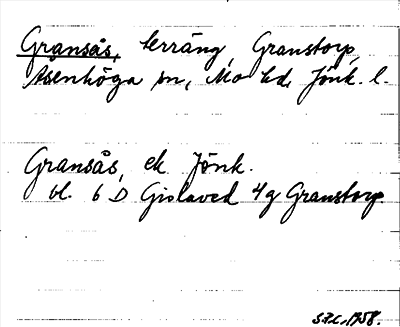 Gransås, terräng, Granstorp,
Åsenhöga sn, Mo hd, Jönk. l.
Gransås, ek Jönk.
bl. 6 D Gislaved 4g Granstorp
1958.